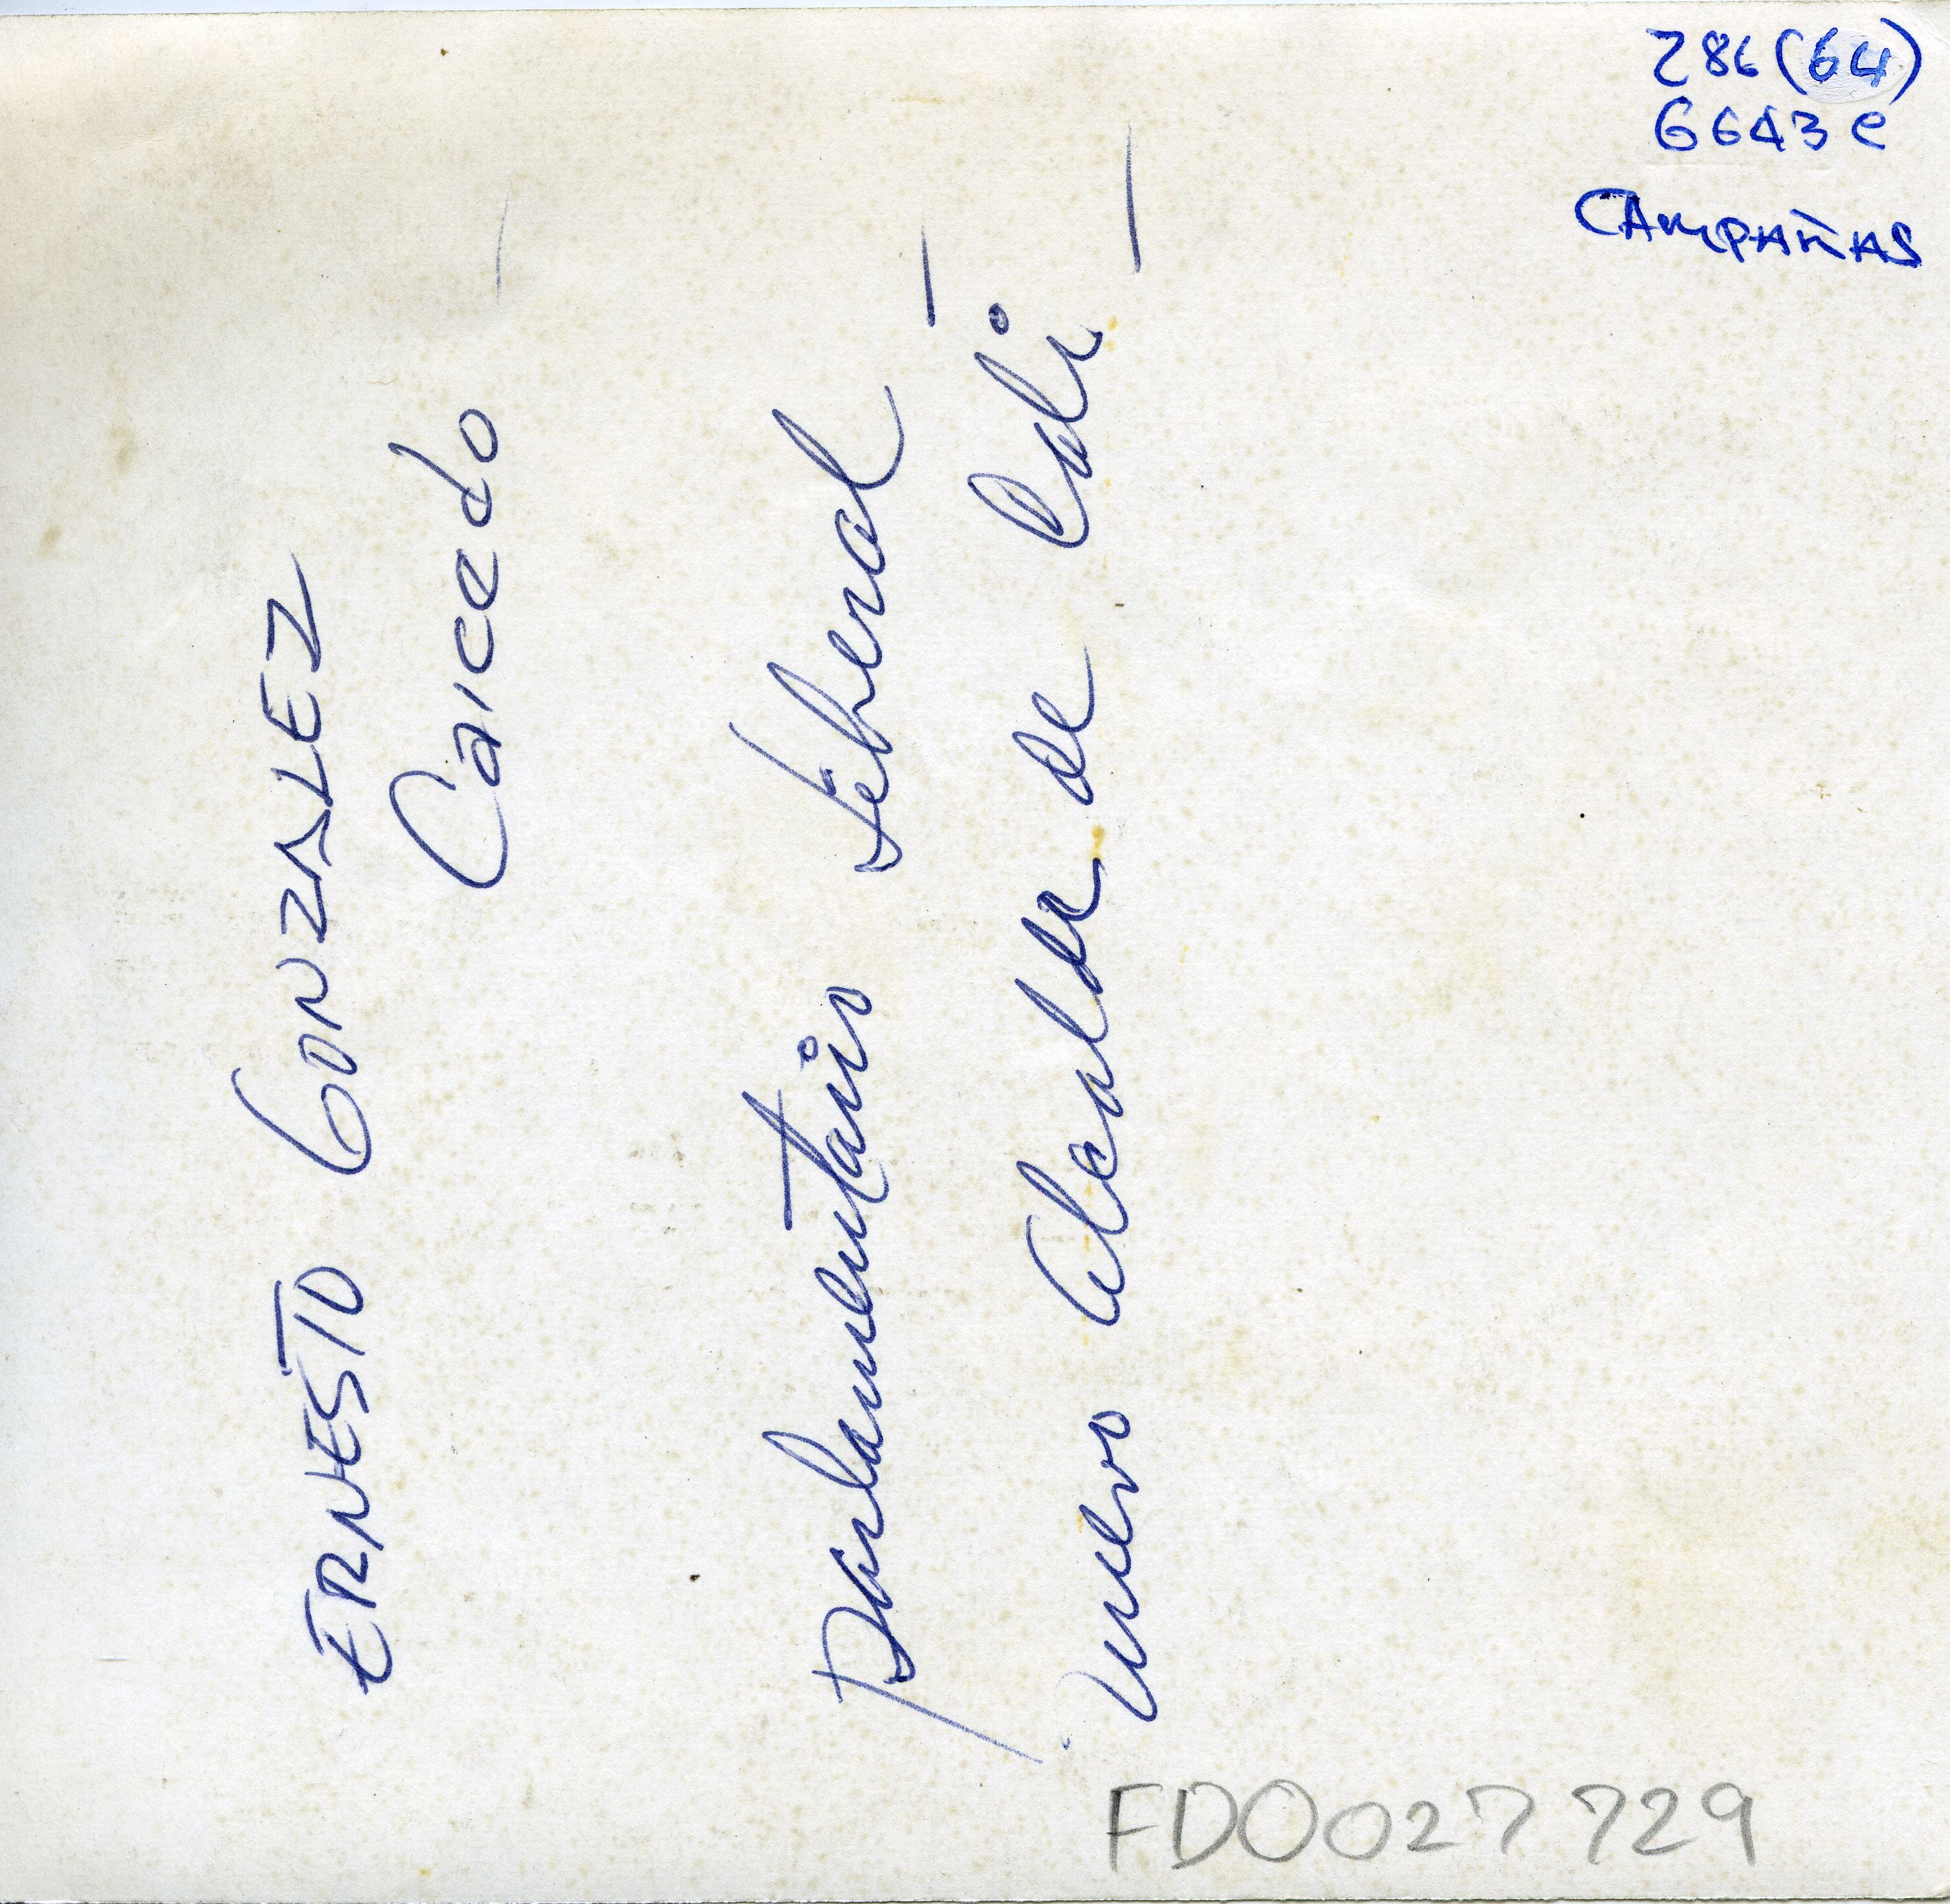 286 (64)
G643e
CAMPAÑAS
ERNESTO GONZALEZ
Caicedo –
Parlamentario Liberal –
Nuevo Alcalde de Cali –
FD0027729